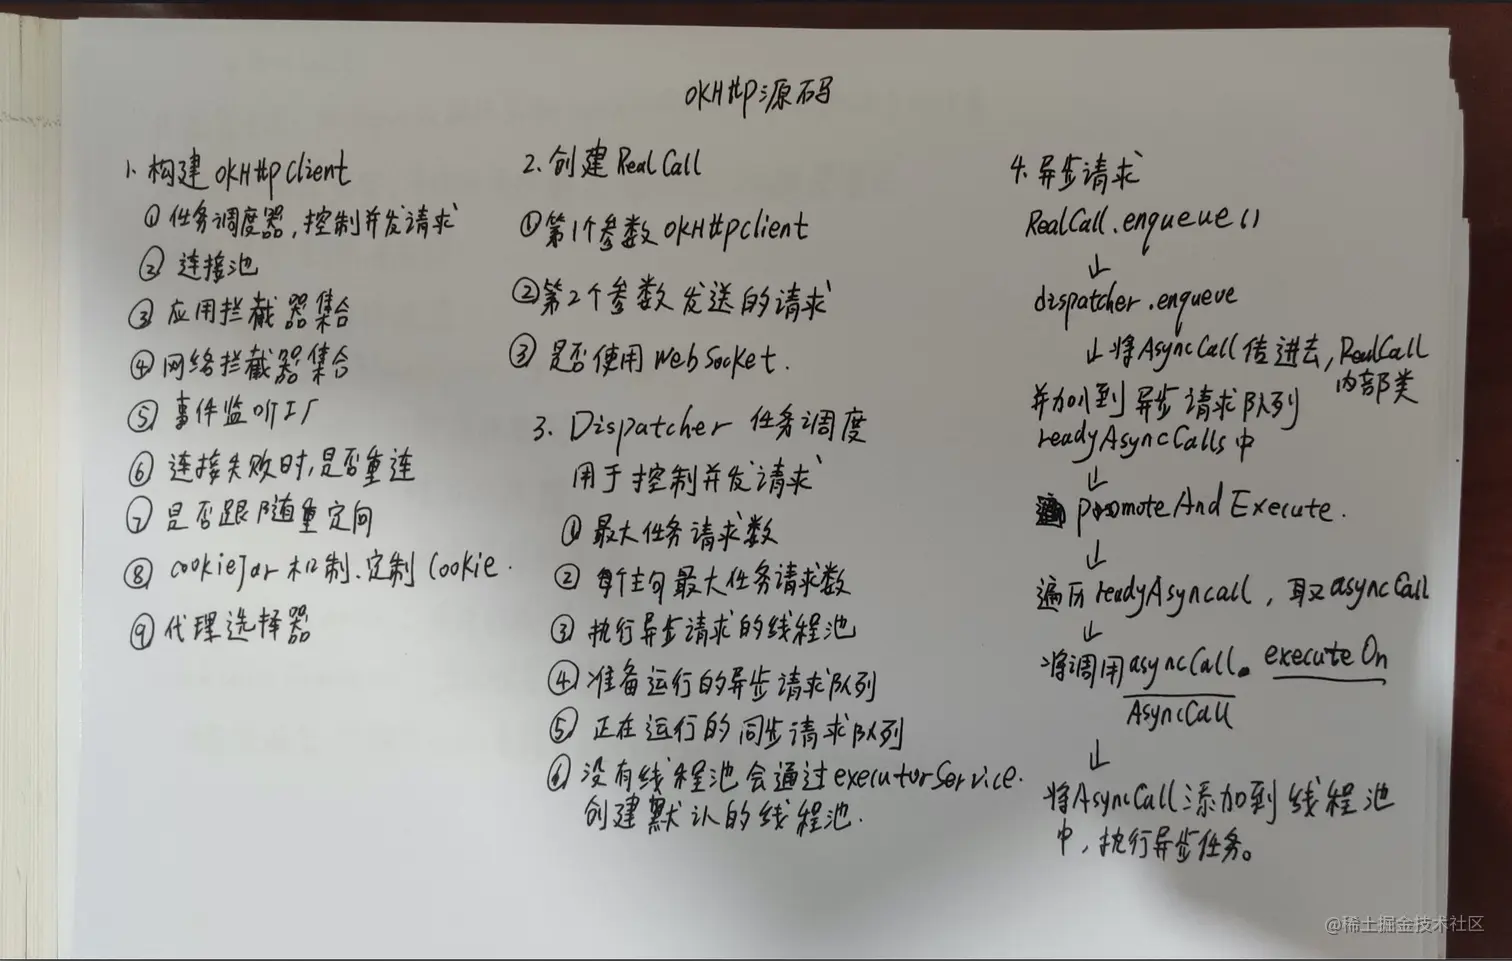 OKHttp源码
1. 构建 OKHttpClient
① 任务调度器，控制并发请求
② 连接池
③ 应用拦截器集合
④ 网络拦截器集合
⑤ 事件监听工厂
⑥ 连接失败时，是否重连
⑦ 是否跟随重定向
⑧ cookieJar 机制、定制 Cookie.
⑨ 代理选择器
2. 创建 RealCall
① 第1个参数 OKHttpclient
② 第2个参数 发送的请求
③ 是否使用 WebSocket.
3. Dispatcher 任务调度
用于控制并发请求
① 最大任务请求数
② 每个主句最大任务请求数
③ 执行异步请求的线程池
④ 准备运行的异步请求队列
⑤ 正在运行的同步请求队列
⑥ 没有线程池会通过 executorService.
创建默认的线程池.
4. 异步请求
RealCall.enqueue()
↓
dispatcher.enqueue
↓ 将 AsyncCall 传进去, RealCall
内部类
并加到异步请求队列
readyAsyncCalls 中
↓
promoteAndExecute.
↓
遍历 readyAsyncall, 取 asyncCall
↓
将调用 asyncCall. executeOn
AsyncCall
↓
将 AsyncCall 添加到线程池
中, 执行异步任务。
@稀土掘金技术社区